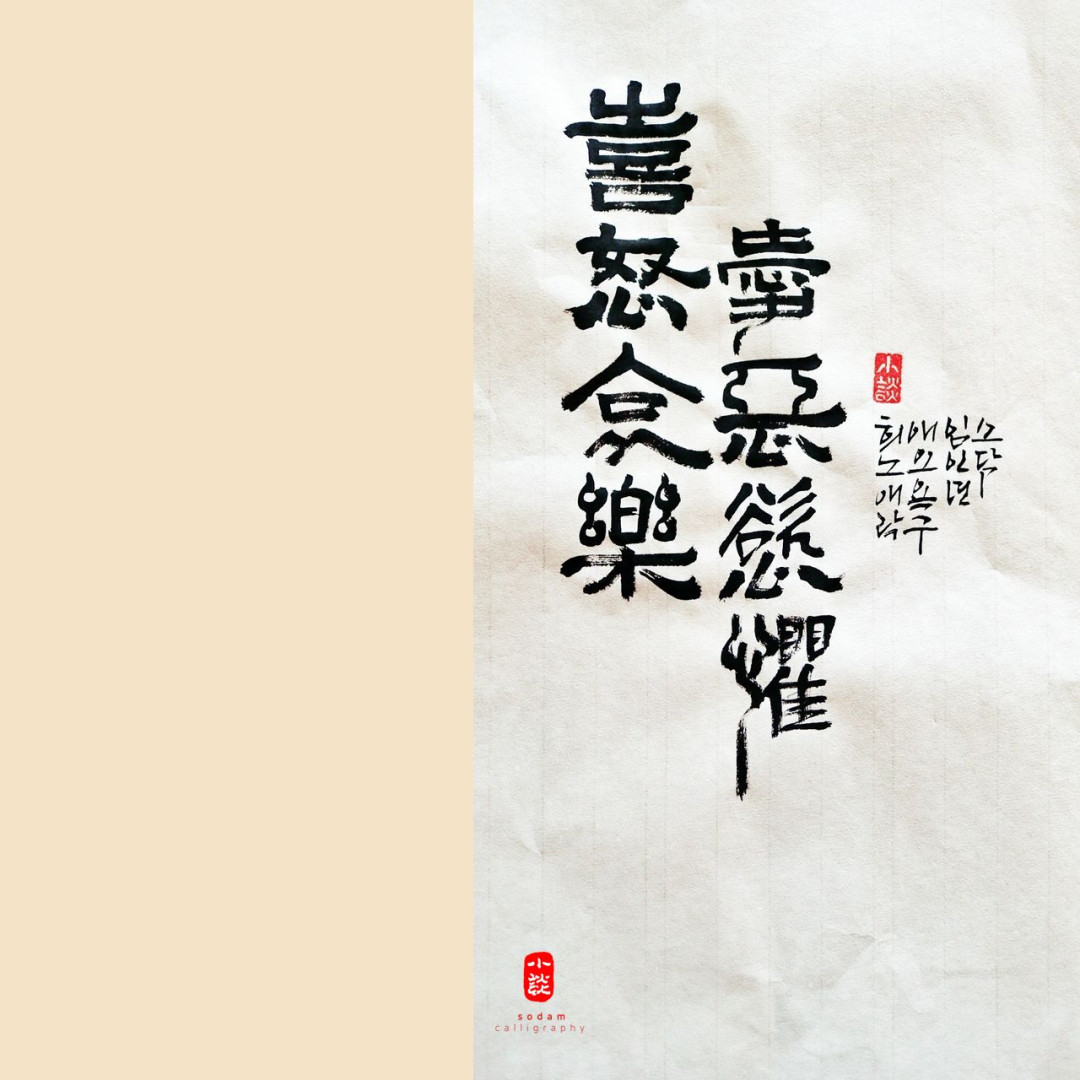 喜怒哀樂
愛惡慾懼
小談
희노애락
애오욕구
임인년
소담
小談
sodam
calligraphy